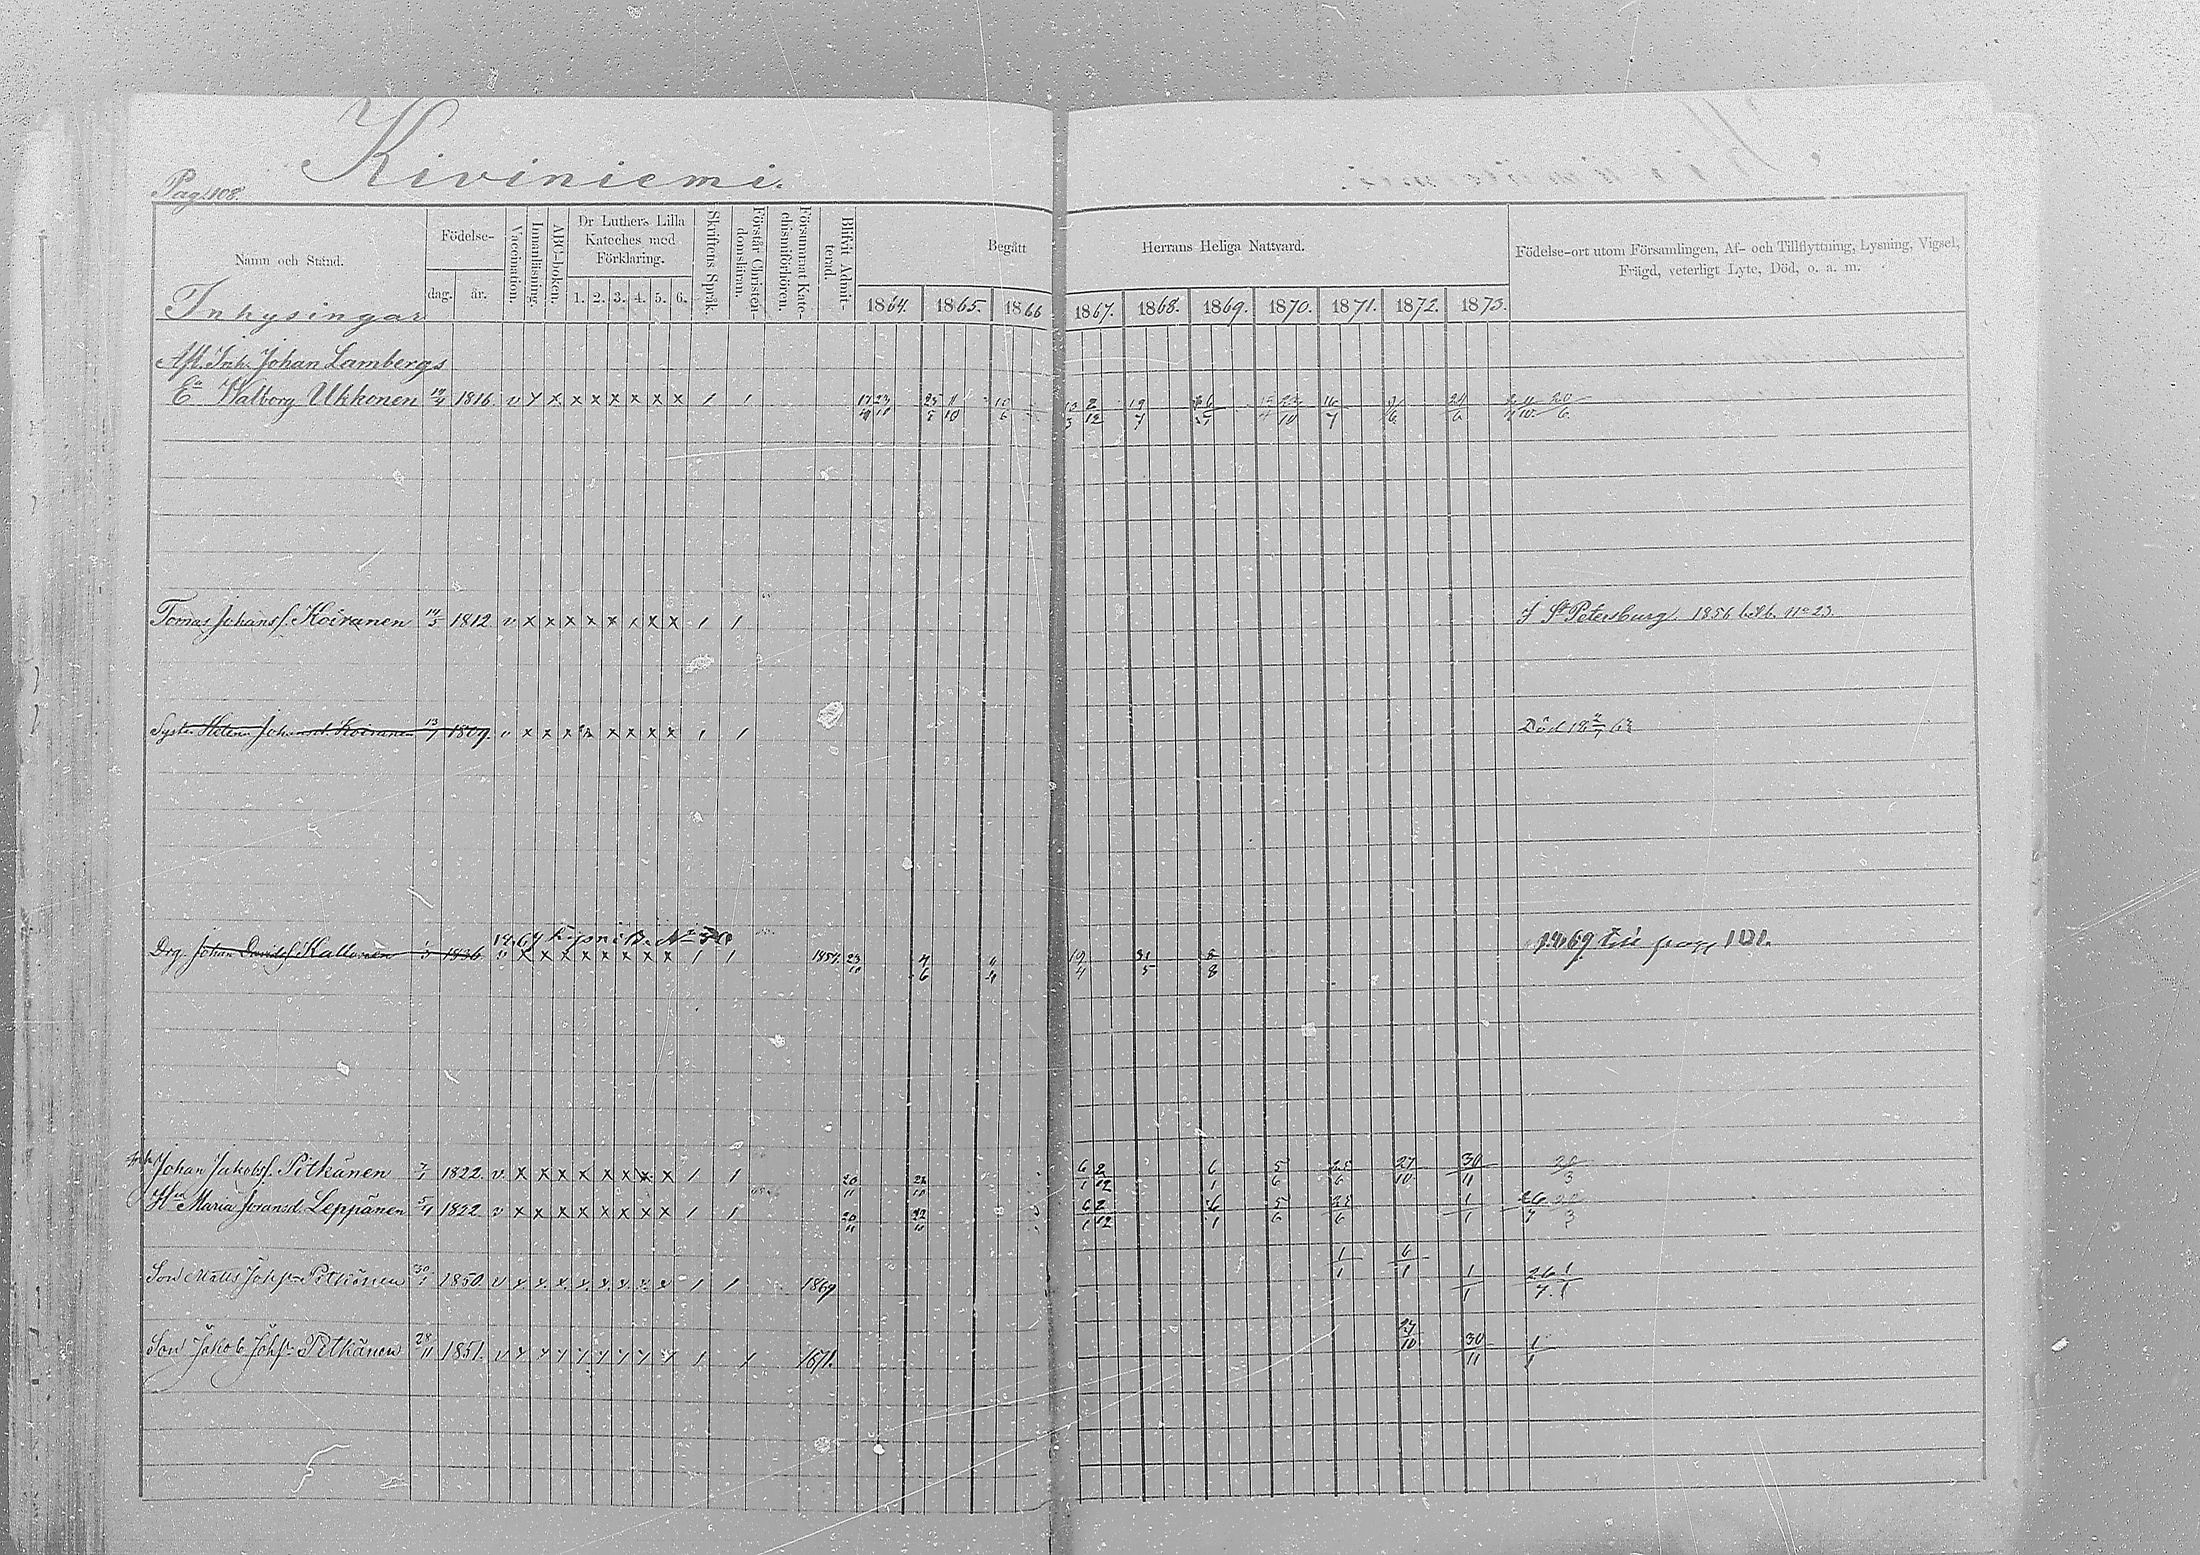 Kiviniemi.
Pag. 108.
Namn och Stånd.
Födelse-
dag. år.
Vaccination.
Innanläsning.
ABC-boken.
Dr Luthers Lilla Kateches med Förklaring.
1. 2. 3. 4. 5. 6.
Skriftens Språk.
Förstår Christendomsläran.
Försummat Katechismiförhören.
Blifvit Admitterad.
Begått Herrans Heliga Nattvard.
1864. 1865. 1866 1867. 1868. 1869. 1870. 1871. 1872. 1873.
Födelse-ort utom Församlingen, Af- och Tillflyttning, Lysning, Vigsel,
Frägd, veterligt Lyte, Död, o. a. m.
Inhysingar
Afl. Inh. Johan Lambergs
Ea Walborg Ukkonen 1816. v x x x x x x x x / /
Tomas Johans s. Koiranen 1812 v x x x x x x x x / / I St Petersburg. 1856 No 23.
Syst. Helena Johansd. Koiranen 13/7 1809. v x x x x x x x x / / Död
Drg. Johan Davids s. Kallonen 1836 v x x x x x x x x / / 1854. 23/10 19/4 31/5 8/8 1869 till pag 101.
Johan Jakobs s. Pitkänen 1822. v x x x x x x x x / / 20/11 6/1 2/12 6/1 5/6 25/6 27/10 30/11 28/3
Hu Maria Göransd. Leppänen 1822. v x x x x x x x x / / 20/11 22/10 6/1 2/12 6/1 5/6 25/6 1/1
Son Matts Johs. Pitkänen 30/1 1850. v x x x x x x x x / / 1869 1/1 6/1 1/1 26/7 1/1
Son Jakob Johs. Pitkänen 28/11 1851. v x x x x x x x x / / 1871. 27/10 30/11 1/1